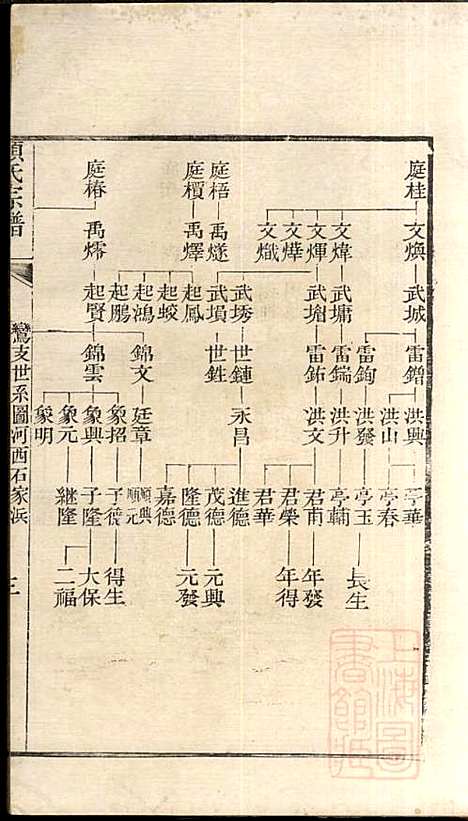 庭桂 庭梧 庭櫝 庭椿
文煥 文煒 文煇 文燁 文熾 禹燧 禹燡 禹燸
武城 武墉 武堉 武塨 武塤 起鳳 起蛟 起鴻 起鵬 起賢
雷鐕 雷鉤 雷鍴 雷鉐 世鏈 世鉎 錦文 錦雲
洪興 洪山 洪發 洪升 洪文 永昌 廷章 象招 象興 象元 象明
亭華 亭春 亭玉 亭輔 君甫 君榮 君華 進德 茂德 隆德 嘉德 順興 順元 子德 子隆 継隆
長生 年發 年得 元興 元發 得生 大保 二福
氏宗譜
鶯支世系圖河西石家浜
上海圖書館藏